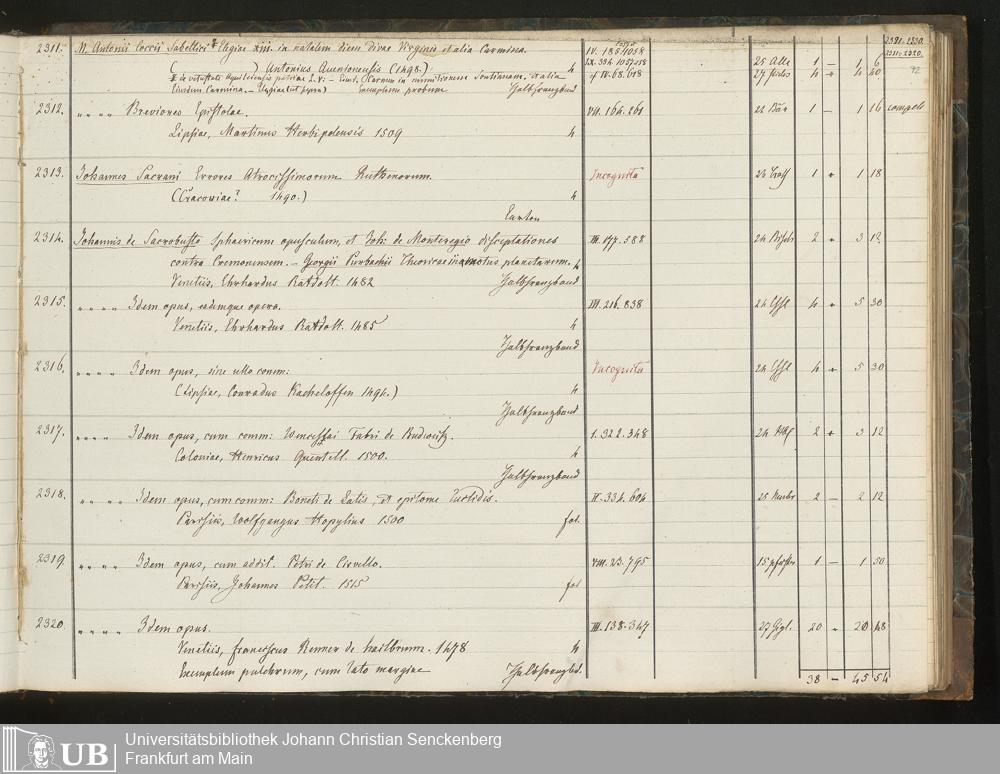 2311. M. Antonii Coccii Sabellici Elegiae xiii. in natalem diem divae Virginis et alia Carmina. IV. 185.1058
( ) Antonius Auenionensis (1498.) 4 IX. 334. 25 1 – 1 6
of IV. 68. 618 27 4 + 4 40
Eiusdem Carmina. – Exemplum probum Halbfranzband
2312. " " " " Breviores Epistolae. VII. 164. 261 22 Bär 1 – 1 16
Lipsiae, Martinus Herbipolensis 1509 4
2313. Johannes Sacrani Errores Atrocissimorum Ruthenorum. Incognita 24 1 + 1 18
(Cracoviae? 1490.) 4
Carton
2314. Johannis de Sacrobusto Sphaericum opusculum, et Joh: de Monteregio disceptationes III. 177. 588 24 2 + 3 12
contra Cremonensem. – Georgii Purbachii Theoricae in motus planetarum. 4
Venetiis, Erhardus Ratdolt. 1482 Halbfranzband
2315. " " " " Idem opus, eademque opera. III. 216. 838 24 4 + 5 30
Venetiis, Erhardus Ratdolt. 1485 4
Halbfranzband
2316. " " " " Idem opus, sine ullo comm: Incognita 24 4 + 5 30
(Lipsiae, Conradus Kacheloffen 1494.) 4
Halbfranzband
2317. " " " " Idem opus, cum comm: Wenceslai Fabri de Budweisz. 1. 322. 348 24 2 + 3 12
Coloniae, Henricus Quentell. 1500. 4
Halbfranzband
2318. " " " " Idem opus, cum comm: Boneti de Latis, et epitome Euclidis. II. 334. 604 25 2 – 2 12
Parisiis, Wolfgangus Hopylius 1500 fol.
2319 " " " " Idem opus, cum addit. Petri de Cirvello. VIII. 23. 795 15 1 – 1 50
Parisiis, Johannes Petit. 1515 fol
2320 " " " " Idem opus. III. 138. 347 27 20 + 20 48
Venetiis, franciscus Renner de hailbrunn. 1478 4
Exemplum pulchrum, cum lato margine Halbfranzbd.
38 – 45 54
2311–2320.
72
UB Universitätsbibliothek Johann Christian Senckenberg
Frankfurt am Main